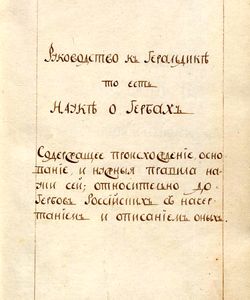 Руководство къ Геральдикѣ
то есть
Наукѣ о Гербахъ
Содержащее происхожденіе, осно-
ваніе, и нужныя правила на-
уки сей; относительно до
Гербовъ Россійскихъ съ насер-
таніемъ и описаніемъ оныхъ.